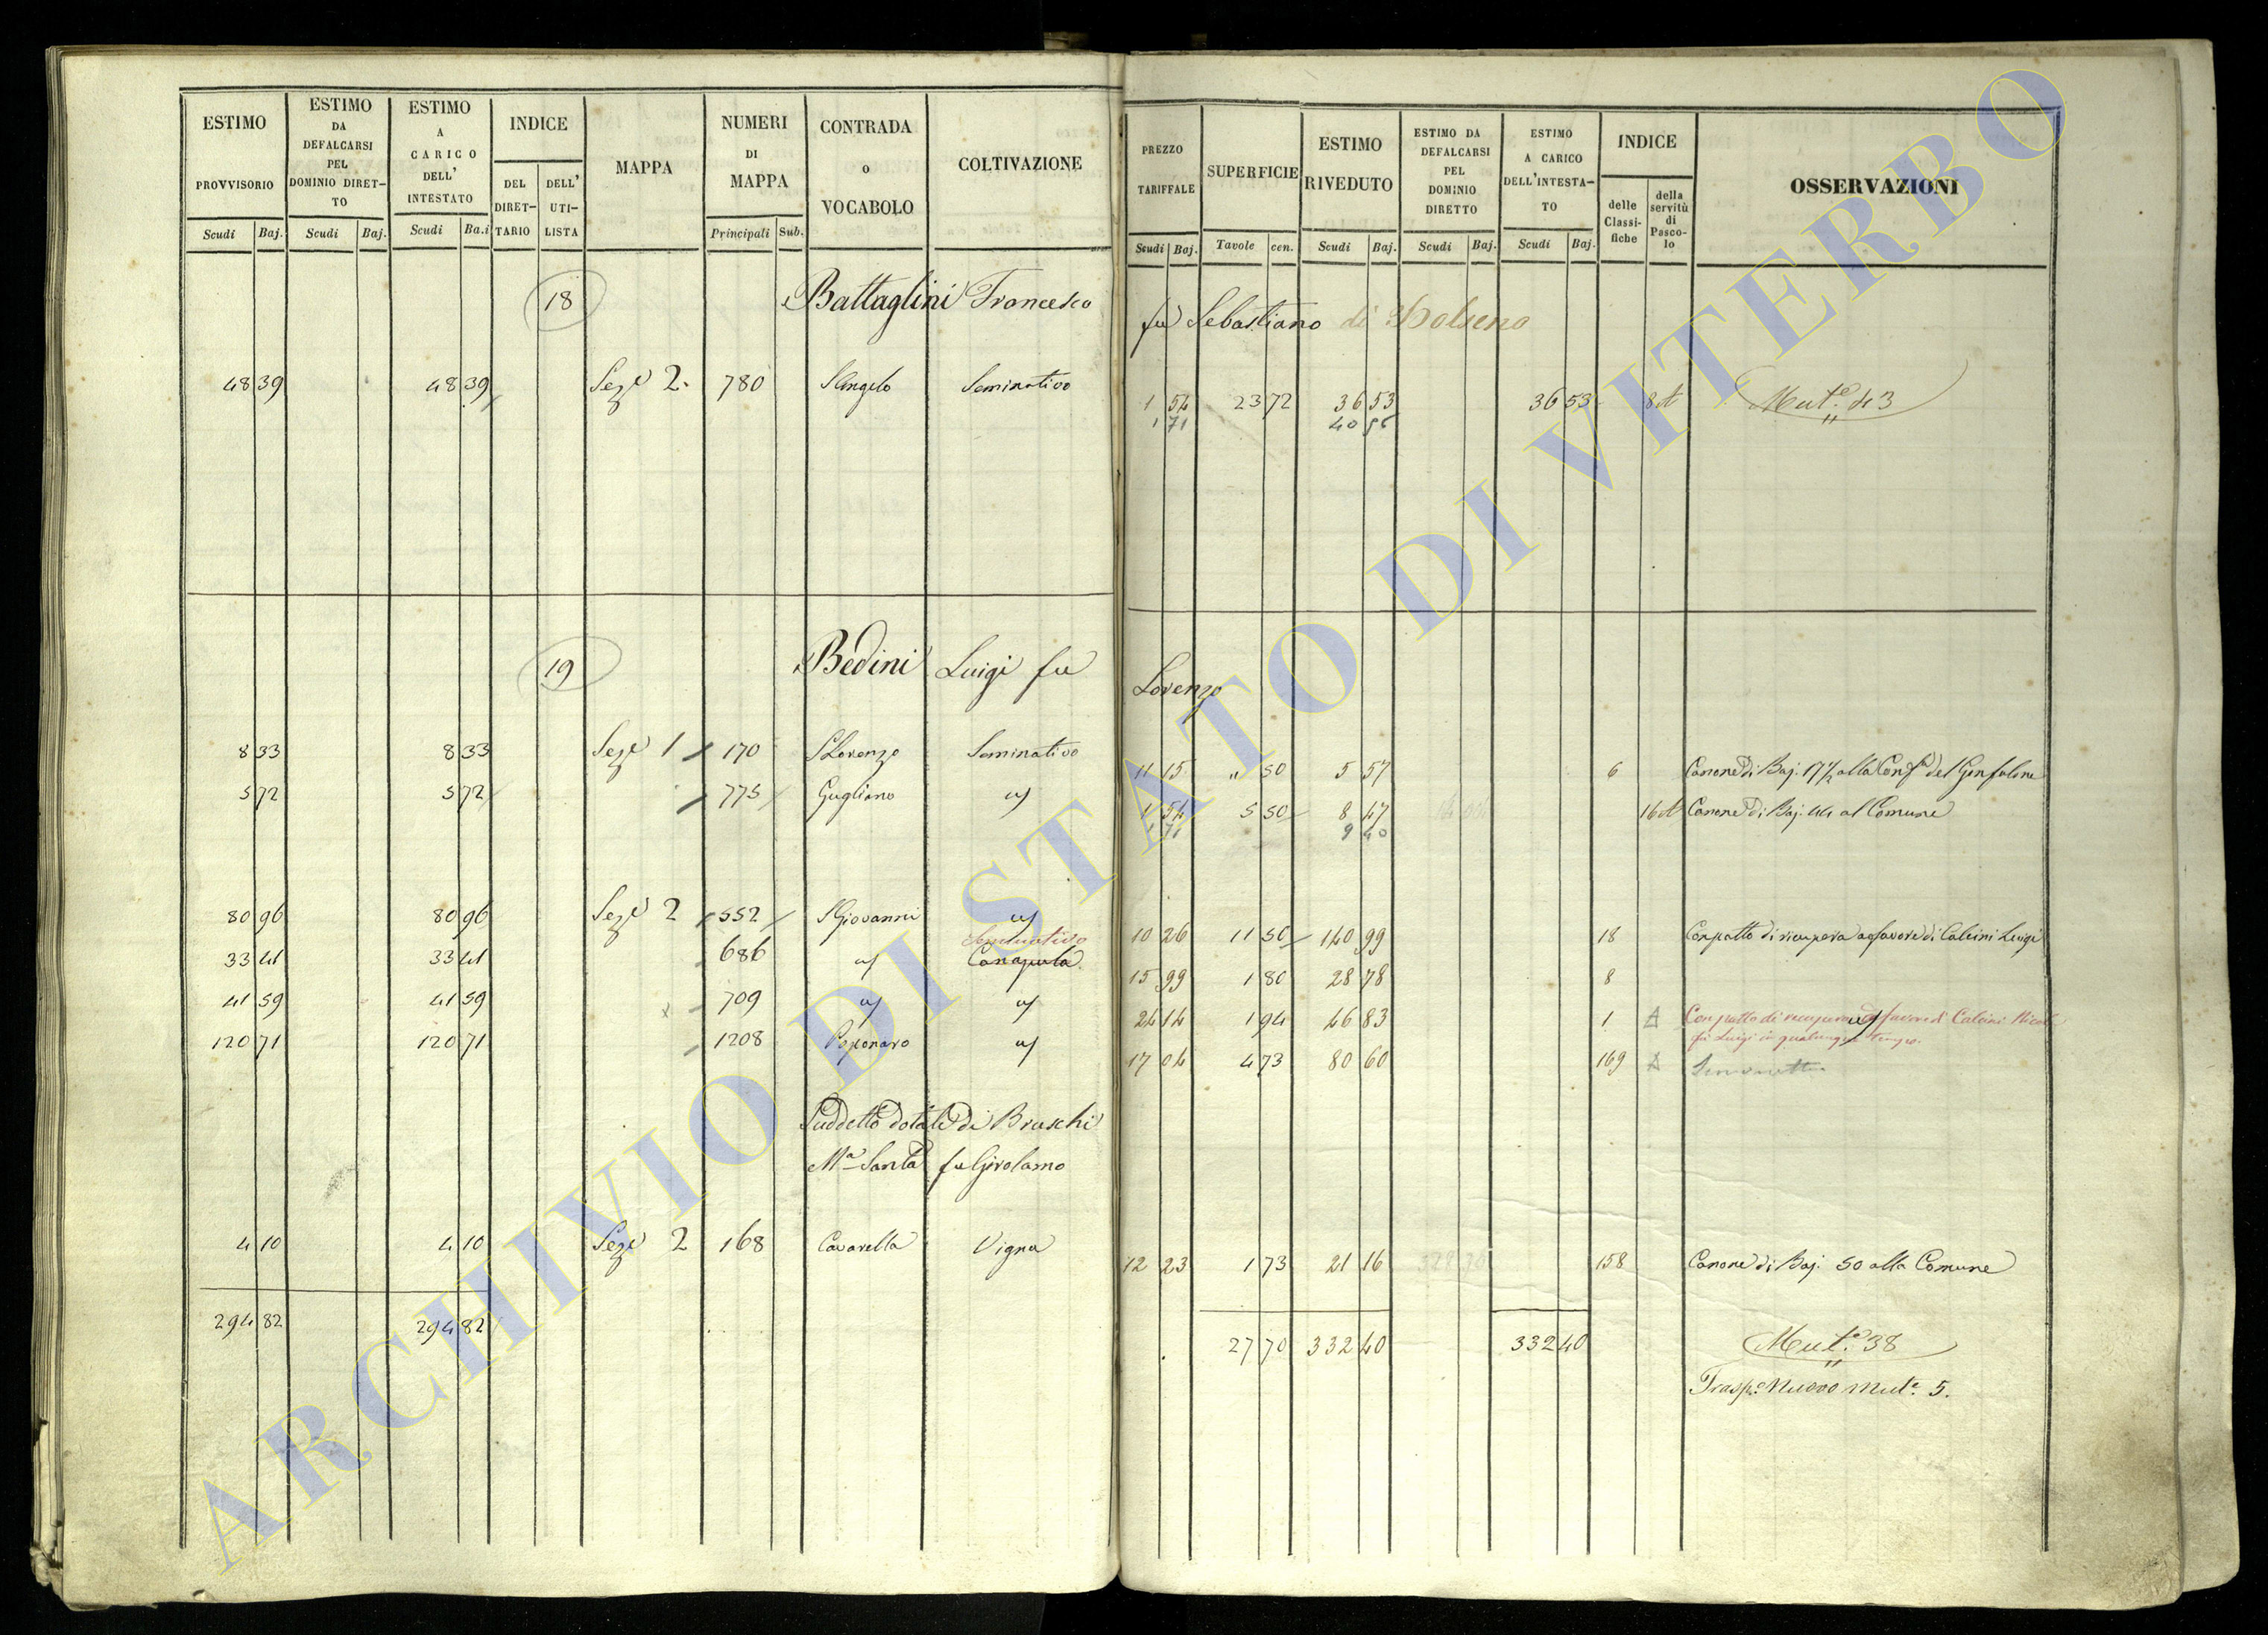 ESTIMO PROVVISORIO Scudi Baj.
ESTIMO DA DEFALCARSI PEL DOMINIO DIRET- TO Scudi Baj.
ESTIMO A CARICO DELL' INTESTATO Scudi Ba.i
INDICE DEL DIRET- TARIO DELL' UTI- LISTA
MAPPA
NUMERI DI MAPPA Principali Sub.
CONTRADA o VOCABOLO
COLTIVAZIONE
PREZZO TARIFFALE Scudi Baj.
SUPERFICIE Tavole cen.
ESTIMO RIVEDUTO Scudi Baj.
ESTIMO DA DEFALCARSI PEL DOMINIO DIRETTO Scudi Baj.
ESTIMO A CARICO DELL'INTESTA- TO Scudi Baj.
INDICE delle Classi- fiche della servitù di Pasco- lo
OSSERVAZIONI
18 Battaglini Francesco fu Sebastiano di Bolseno
48 39 48 39 Seze 2. 780 S Angelo Seminativo 1 54 23 72 36 53 36 53 8 A Mut.e 43
1 71 40 56
19 Bedini Luigi fu Lorenzo
8 33 8 33 Seze 1 170 S Lorenzo Seminativo 11 15 " 50 5 57 6 Canone di Baj. 17½ alla Conf.a del Gonfalone
5 72 5 72 775 Gugliano " 1 54 5 50 8 47 16 A Canone di Baj. 44 al Comune
1 71 9 40
80 96 80 96 Seze 2 552 S Giovanni " 10 26 11 50 140 99 18 Con patto di ricupera a favore di Calcini Luigi
Seminativo
33 41 33 41 686 " Canapula 15 99 1 80 28 78 8
41 59 41 59 709 " " 24 14 1 94 46 83 1 A Con patto di recupera a favore di Calcini
fu Luigi in qualunque tempo.
120 71 120 71 1208 Poponaro " 17 04 4 73 80 60 169 A
Suddetto dotale di Bruschi
Ma Santa fu Girolamo
4 10 4 10 Seze 2 168 Cavarella Vigna 12 23 1 73 21 16 158 Canone di Baj. 50 alla Comune
294 82 294 82 27 70 332 40 332 40 Mut.e 38
Trasp.e Nuovo Mut.e 5.
ARCHIVIO DI STATO DI VITERBO